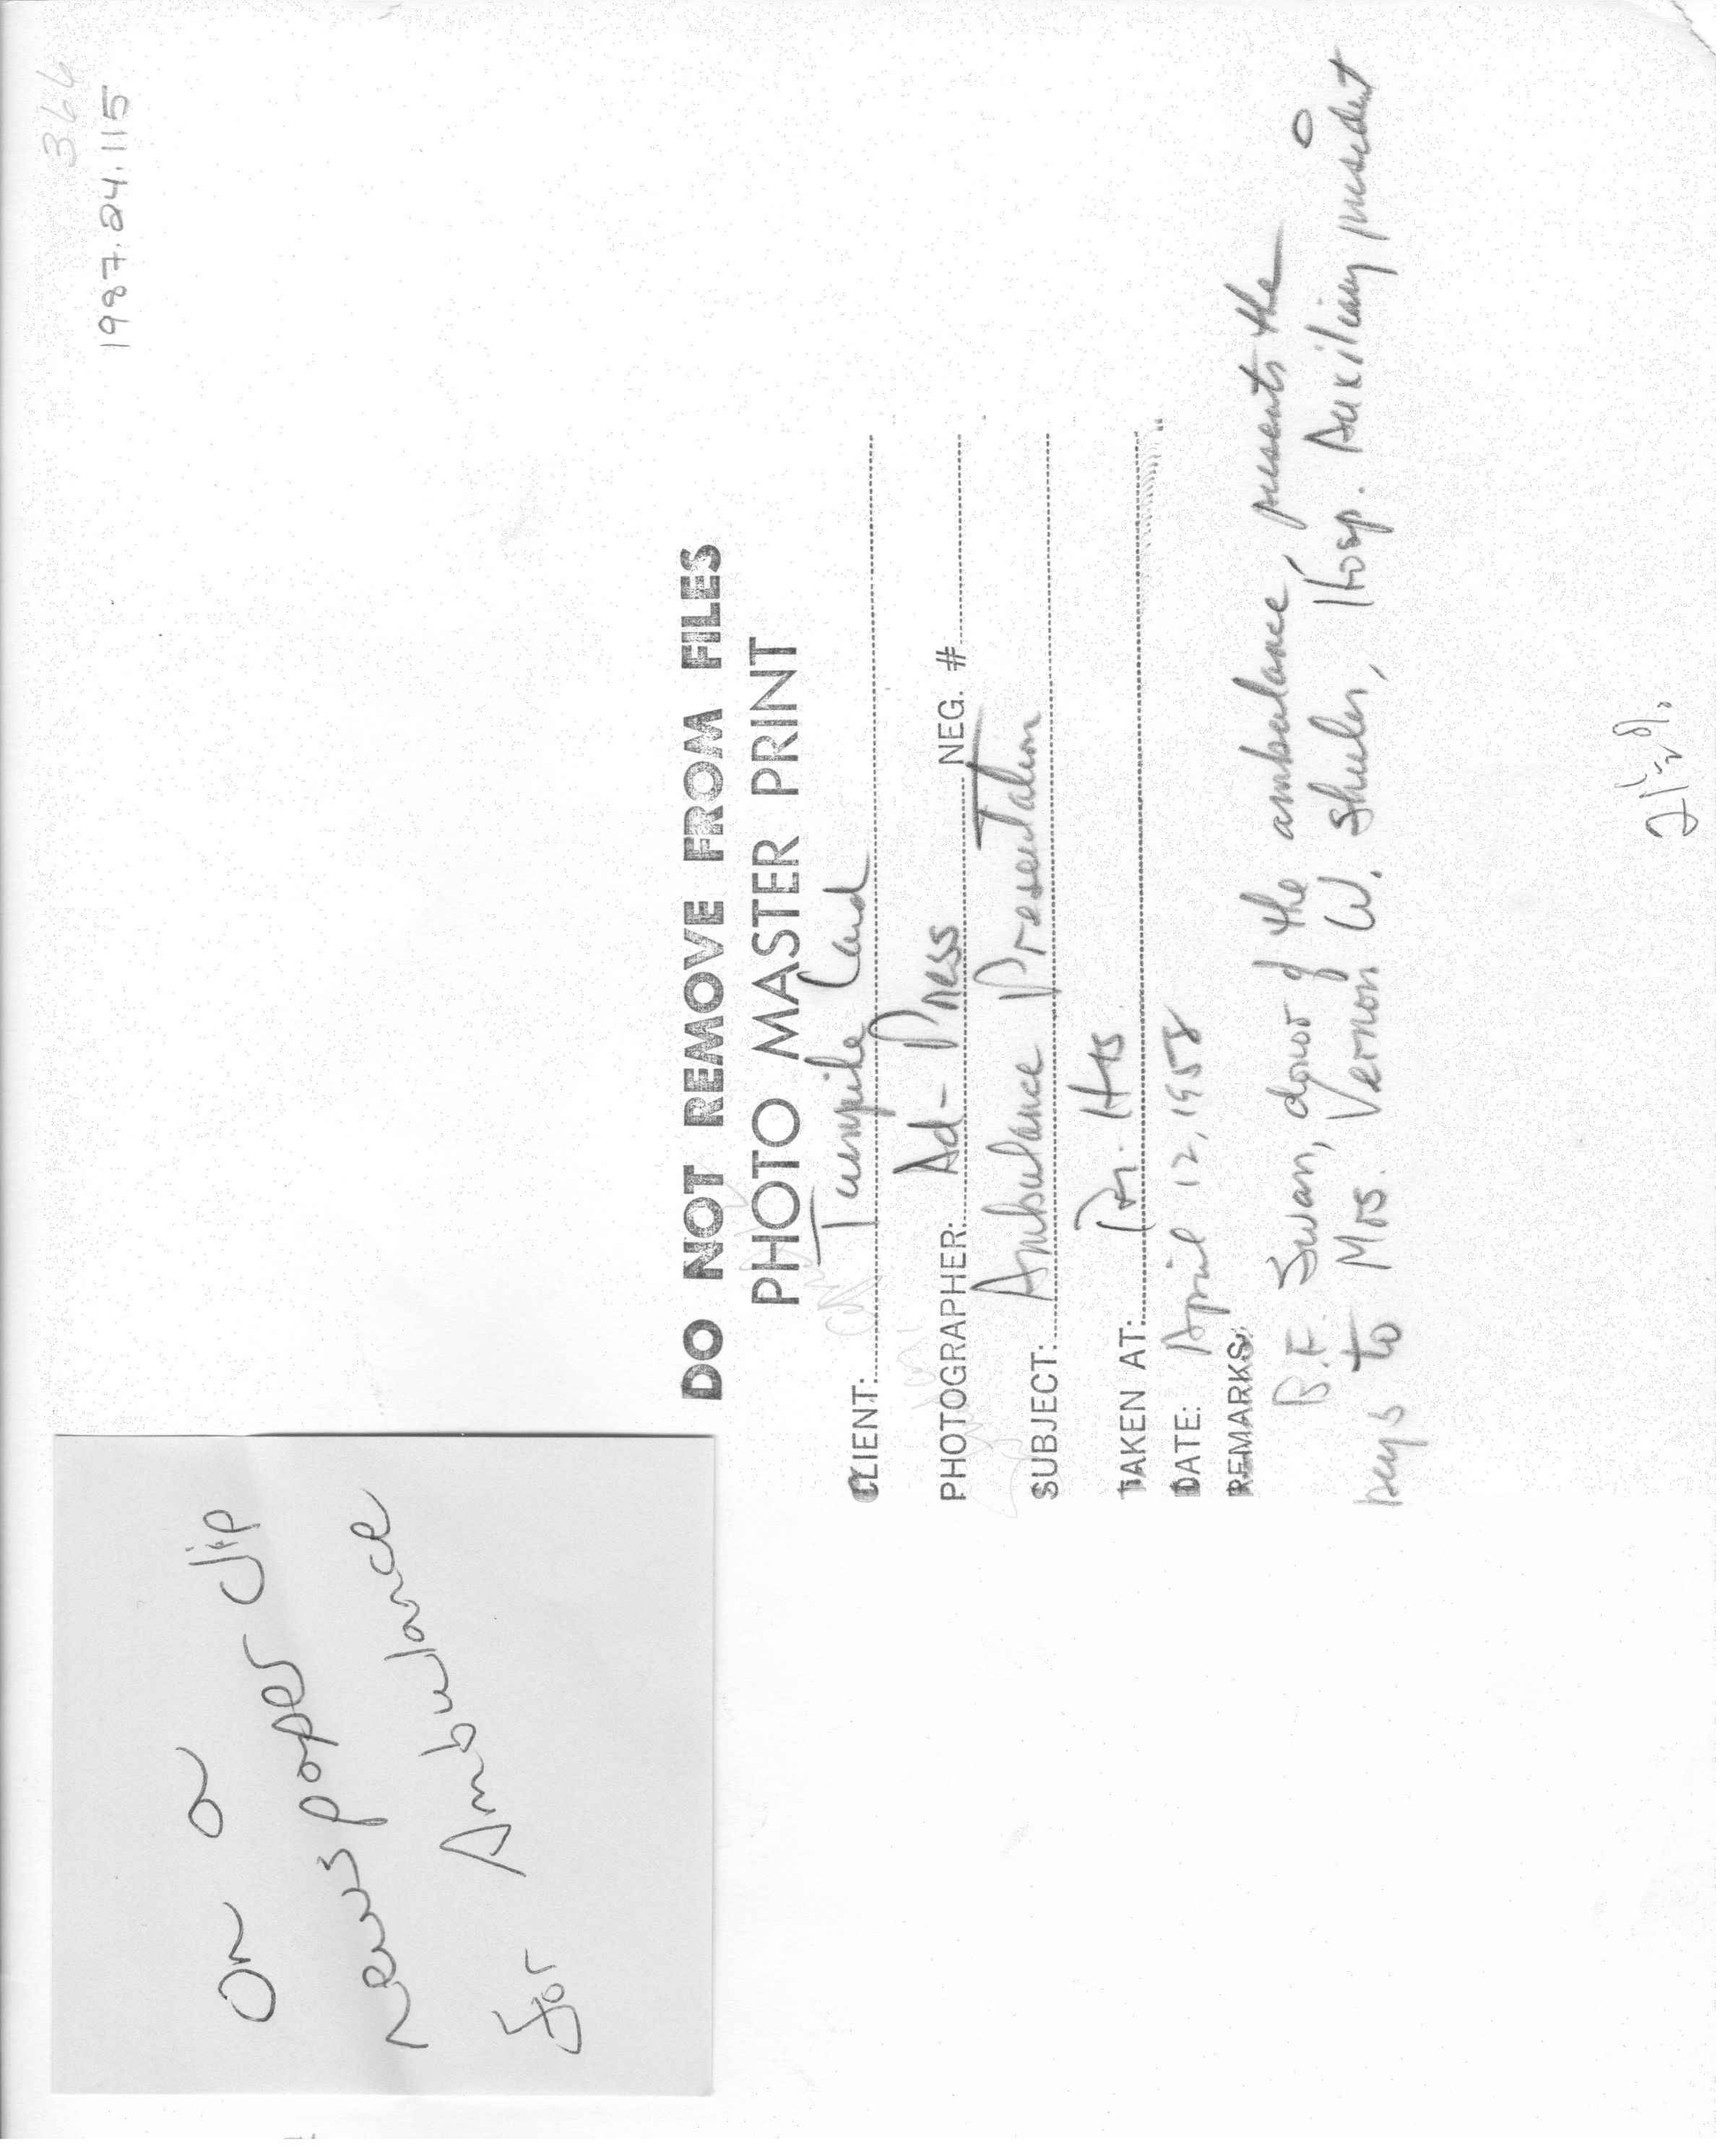 366
1987.24.115
on a
newspaper clip
for Ambulance
DO NOT REMOVE FROM FILES
PHOTO MASTER PRINT
CLIENT: Turnpike Land
PHOTOGRAPHER: Ad-Press NEG. #
SUBJECT: Ambulance Presentation
TAKEN AT: Pr. Hts
DATE: April 12, 1958
REMARKS:
B.F. Swan, donor of the ambulance, presents the
keys to Mrs. Vernon W. Shuler, Hosp. Auxiliary president